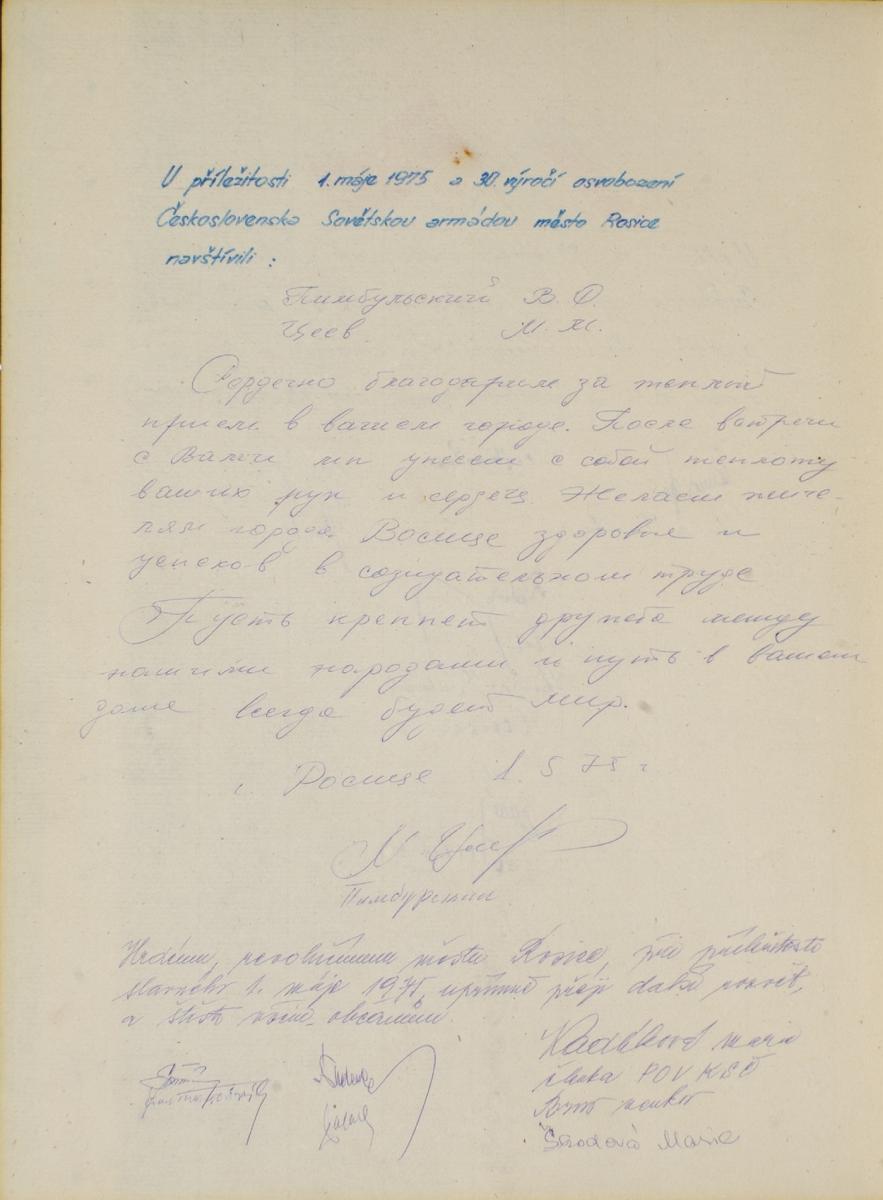 U příležitosti 1. máje 1975 a 30. výročí osvobození
Československa Sovětskou armádou město Rosice
navštívili :
Пимбульский В. Ф.
Цеев М. М.
Сердечно благодарим за теплый
прием в вашем городе. После встречи
с Вами мы унесем с собой теплоту
ваших рук и сердец. Желаем жите-
лям города Восице здоровья и
успехов в созидательном труде
Пусть крепнет дружба между
нашими народами и пусть в вашем
доме всегда будет мир.
г. Росице 1. 5 75 г
Hrdému, revolučnímu městu Rosice, při příležitosti
slavného 1. máje 1975, upřímně přeji další rozvět,
a štěstí všem občanům.
Marie
členka POV KSČ
Brno venkov
Marie